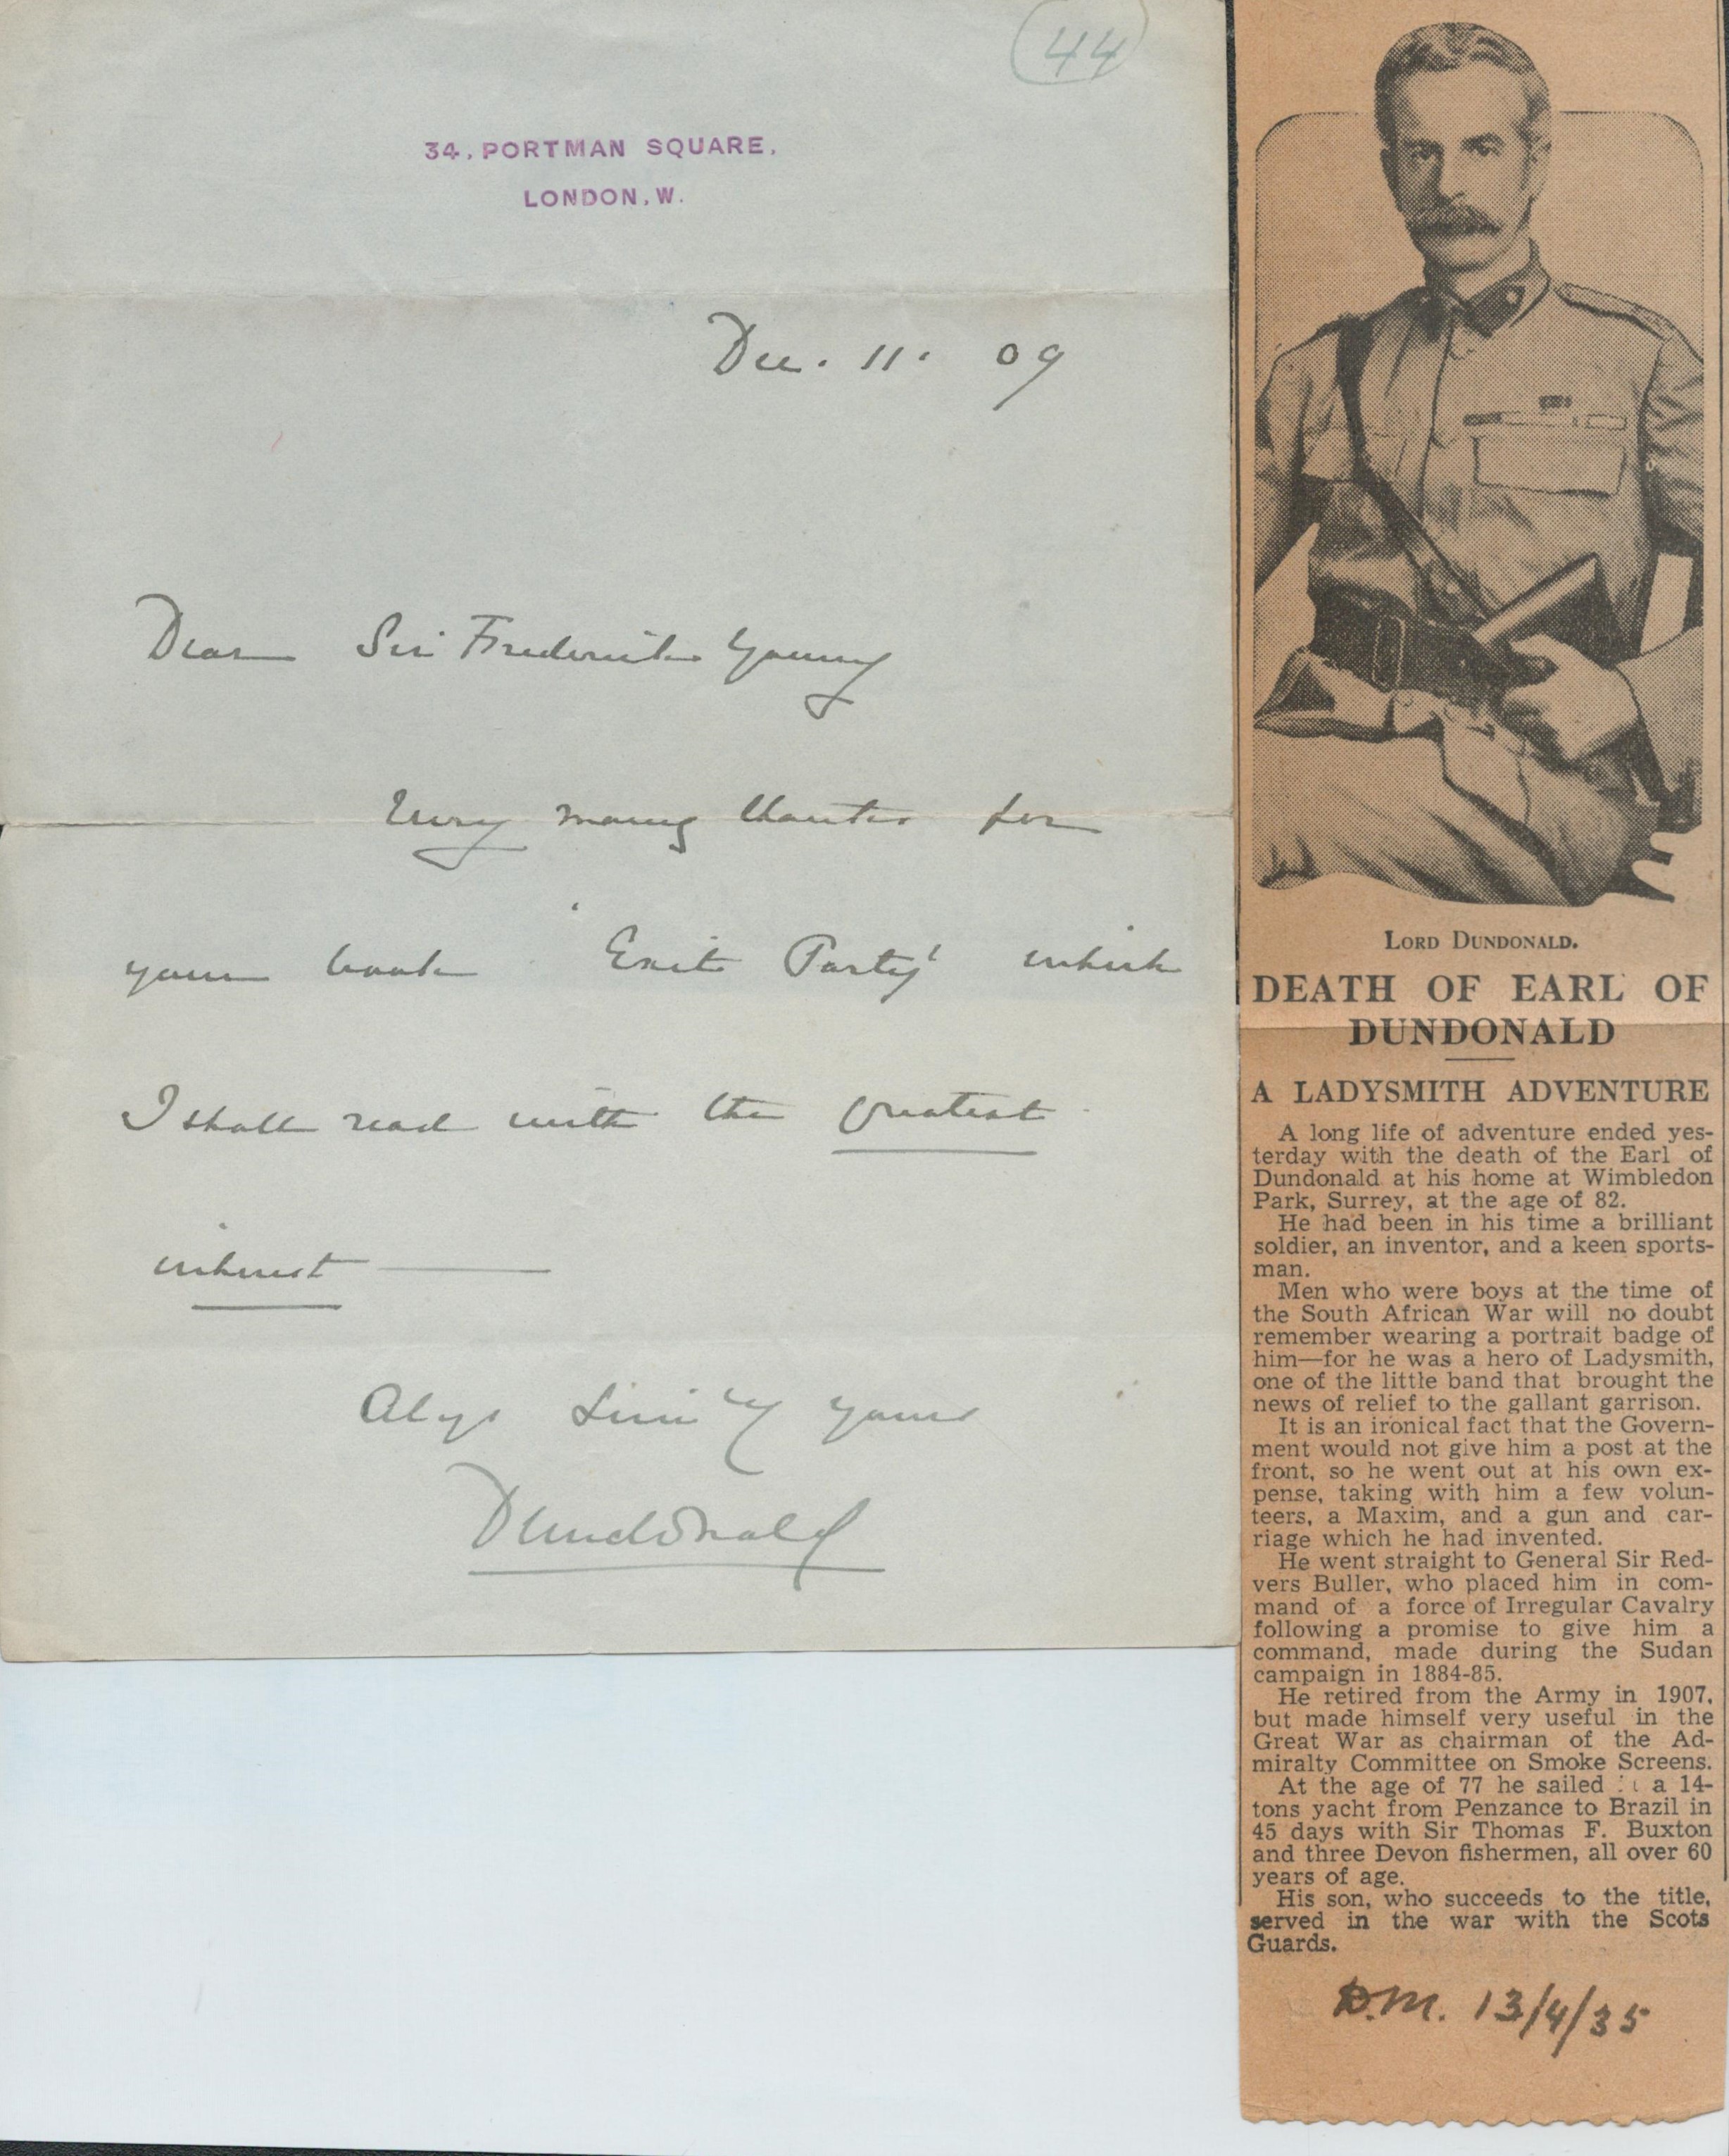 44
34, PORTMAN SQUARE,
LONDON, W.
Dec. 11. 09
Dear Sir Frederick Young
Very many thanks for
your book 'Exit Party' which
I shall read with the greatest
interest
Alys Sincly yours
Dundonald
LORD DUNDONALD.
DEATH OF EARL OF
DUNDONALD
A LADYSMITH ADVENTURE
A long life of adventure ended yes-
terday with the death of the Earl of
Dundonald at his home at Wimbledon
Park, Surrey, at the age of 82.
He had been in his time a brilliant
soldier, an inventor, and a keen sports-
man.
Men who were boys at the time of
the South African War will no doubt
remember wearing a portrait badge of
him—for he was a hero of Ladysmith,
one of the little band that brought the
news of relief to the gallant garrison.
It is an ironical fact that the Govern-
ment would not give him a post at the
front, so he went out at his own ex-
pense, taking with him a few volun-
teers, a Maxim, and a gun and car-
riage which he had invented.
He went straight to General Sir Red-
vers Buller, who placed him in com-
mand of a force of Irregular Cavalry
following a promise to give him a
command, made during the Sudan
campaign in 1884-85.
He retired from the Army in 1907,
but made himself very useful in the
Great War as chairman of the Ad-
miralty Committee on Smoke Screens.
At the age of 77 he sailed a 14-
tons yacht from Penzance to Brazil in
45 days with Sir Thomas F. Buxton
and three Devon fishermen, all over 60
years of age.
His son, who succeeds to the title,
served in the war with the Scots
Guards.
D.M. 13/4/35